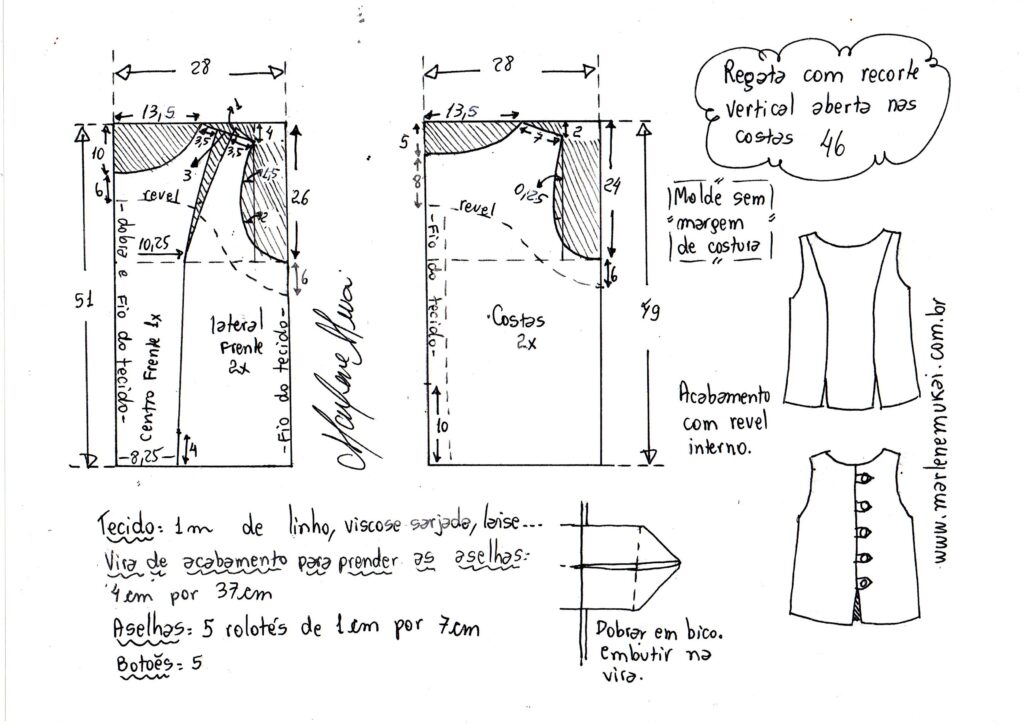 Regata com recorte
vertical aberta nas
costas 46
Molde sem
margem
de costura
28
13,5
1
4
10
3,5
3,5
3
6
revel
1,5
2
26
10,25
6
51
-dobra e Fio do tecido-
Centro Frente 1x
lateral
Frente
2x
-Fio do tecido-
8,25
4
Marlene Mukai
28
13,5
5
7
2
8
0,25
24
revel
6
-Fio do tecido-
Costas
2x
49
10
Acabamento
com revel
interno.
www.marlenemukai.com.br
Tecido: 1m de linho, viscose sarjada, laise...
Vira de acabamento para prender as aselhas:
4cm por 37cm
Aselhas: 5 rolotés de 1cm por 7cm
Botões: 5
Dobrar em bico.
embutir na
vira.